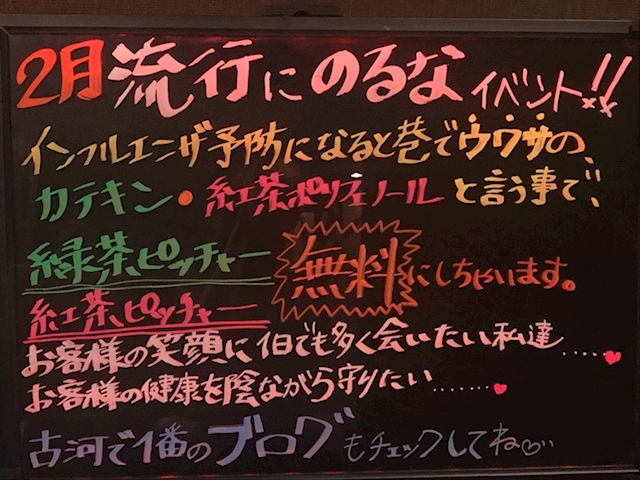 2月流行にのるなイベント!!
インフルエンザ予防になると巷でウワサの、
カテキン・紅茶ポリフェノールと言う事で、
緑茶ピッチャー
紅茶ピッチャー
無料にしちゃいます。
お客様の笑顔に1日でも多く会いたい私達.....♥
お客様の健康を陰ながら守りたい........♥
古河で1番のブログもチェックしてね♡...